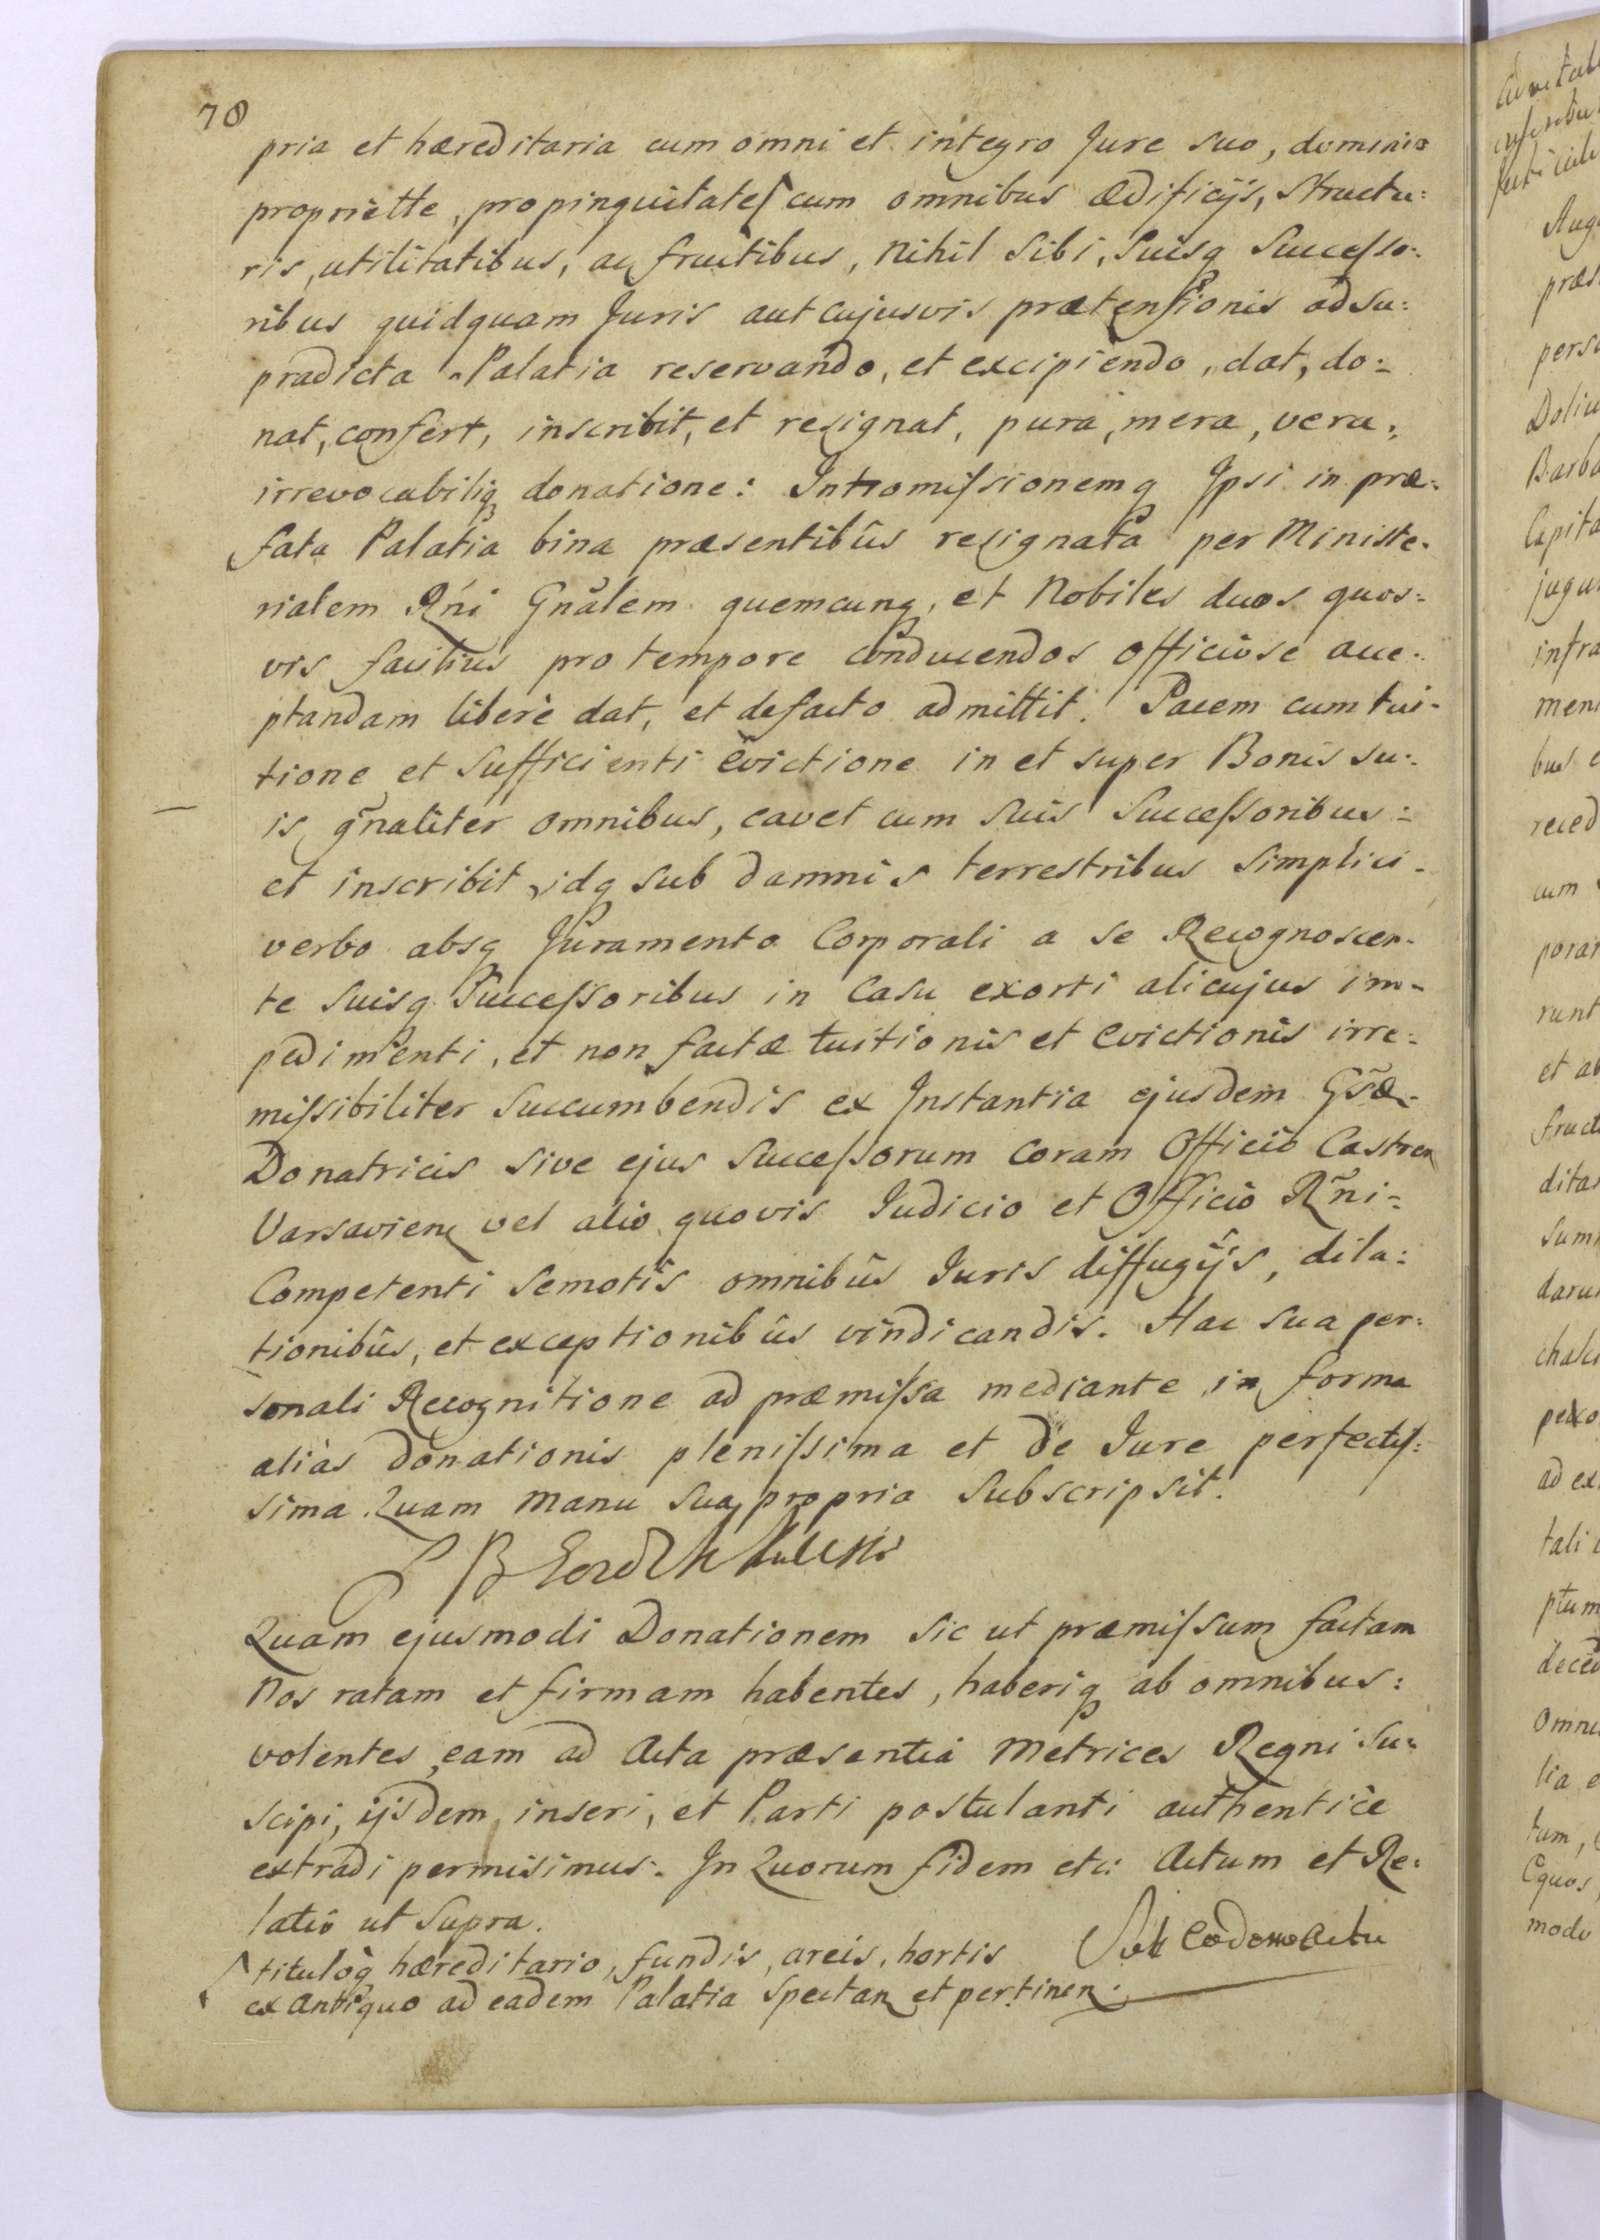 78
pria et hæreditaria cum omni et integro Jure suo, dominio
propriette, propinquitate cum omnibus ædificijs, structu:
ris, utilitatibus, ac fructibus, nihil sibi, suisq Successo:
ribus quidquam Juris aut cujusvis prætensionis ad su:
pradicta Palatia reservando, et excipiendo, dat, do:
nat, confert, inscribit, et resignat, pura, mera, vera,
irrevocabiliq donatione: Intromissionemq Ipsi in præ:
fata Palatia bina præsentibûs resignata per Ministe:
rialem Rñi Gnãlem quemcunq, et Nobiles duos quos:
vis facilius pro tempore conducendos officiose acce:
ptandam liberè dat, et de facto admittit. Pacem cum tui:
tione et sufficienti evictione in et super Bonis su:
is gñaliter omnibus, cavet cum suis Successoribus:
et inscribit, idq sub damnis terrestribus simplici
verbo absq Juramento Corporali a se Recognoscen:
te suisq Successoribus in casu exorti alicujus im:
pedimenti, et non factæ tuitionis et evictionis irre:
missibiliter succumbendis ex Instantia ejusdem Gsæ
Donatricis sive ejus Successorum coram Officio Castren
Varsavien vel alio quovis Judicio et Officio Rñi:
Competenti semotis omnibûs Juris diffugijs, dila:
tionibûs, et exceptionibûs vindicandis. Hac sua per:
sonali Recognitione ad præmissa mediante in forma
aliàs donationis plenissima et de Jure perfectis:
sima. Quam manu sua propria subscripsit.
Quam ejusmodi Donationem sic ut præmissum factam
Nos ratam et firmam habentes, haberiq ab omnibus:
volentes, eam ad Acta præsentia Metrices Regni su:
scipi, ijsdem inseri, et Parti postulanti authenticè
extradi permisimus. In Quorum fidem etc: Actum et Re:
latio ut supra.
titulóq hæreditario, fundis, areis, hortis
ex antiquo ad eadem Palatia spectan et pertinen.